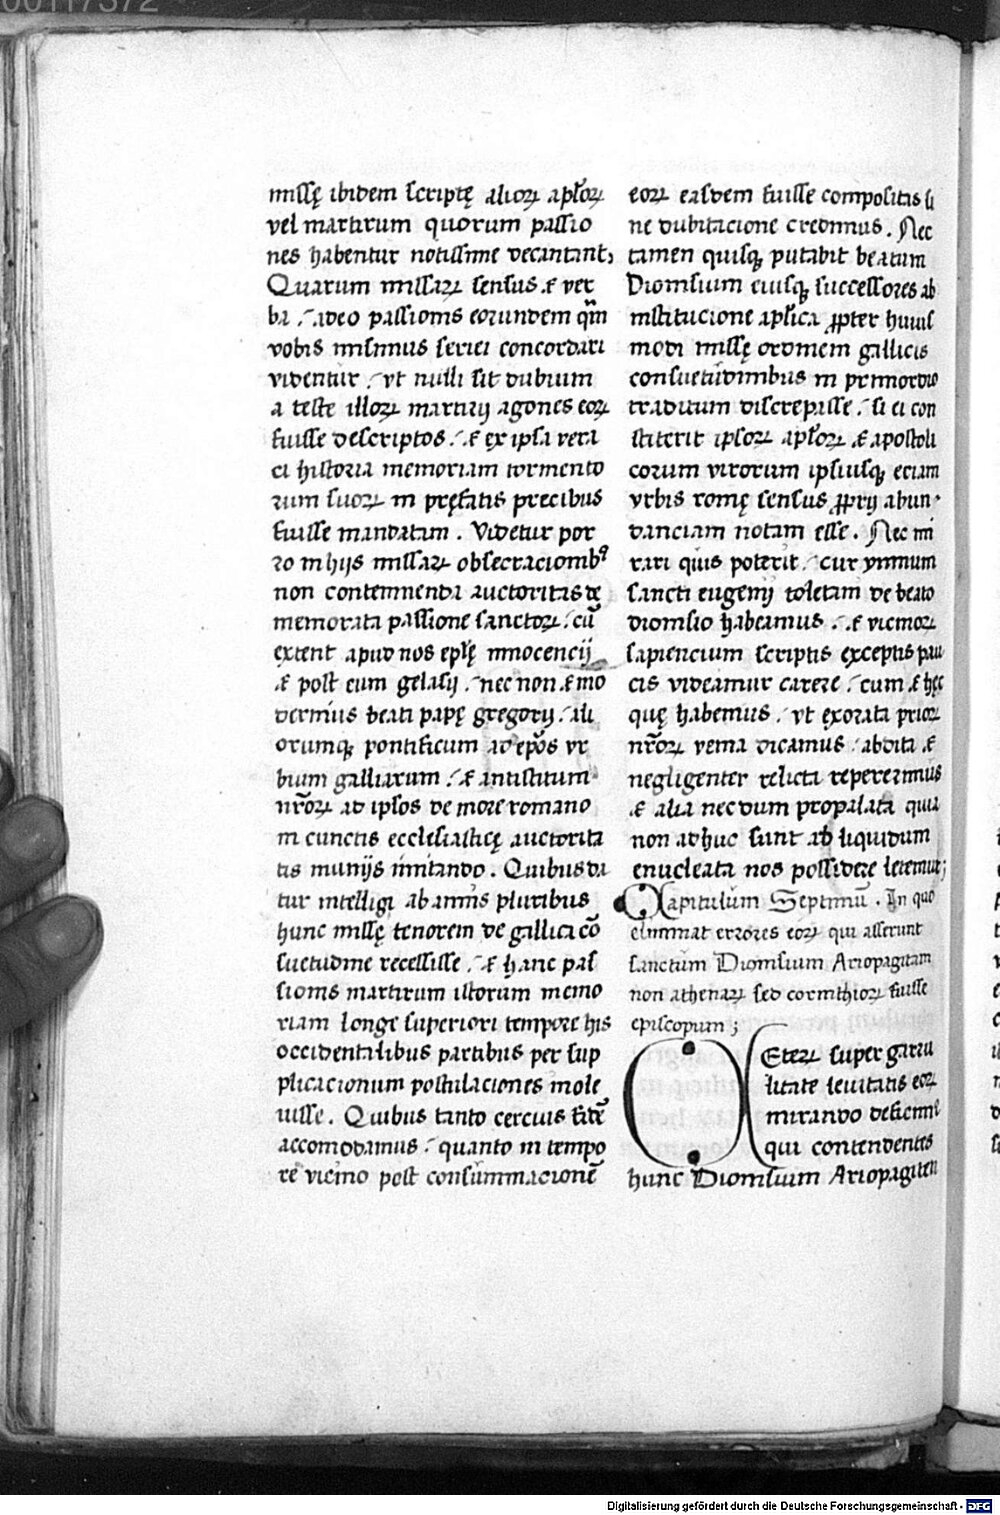 00117372
missę ibidem scriptę alioꝝ aploꝝ
vel martirum quorum passio
nes habentur notissime decantant᷒
Quarum missaꝝ sensus ⁊ ver
ba / adeo passionis eorundem qm̄
vobis misimus seriei concordari
videntur / vt nulli sit dubium
a teste illoꝝ martirij agones eoꝝ
fuisse descriptos / ⁊ ex ipsa vera
ci historia memoriam tormento
rum suoꝝ in pręfatis precibus
fuisse mandatam . Videtur por
ro in hijs missaꝝ obsecracionibꝰ
non contemnenda auctoritas de
memorata passione sanctoꝝ / cū
extent apud nos eplę innocencij
⁊ post eum gelasij / nec non ⁊ mo
dernius beati papę gregorij / ali
orumqꝫ pontificum ad ep̄os vr
bium galliarum / ⁊ antistitum
nr̄oꝝ ad ipsos de more romano
in cunctis ecclesiasticę auctorita
tis munijs imitando . Quibus da
tur intelligi ab annis pluribus
hunc missę tenorem de gallica cō
suetudine recessisse / ⁊ hanc pas
sionis martirum istorum memo
riam longe superiori tempore his
occidentalibus partibus per sup
plicacionum postulaciones inole
uisse . Quibus tanto cercius fidē
accomodamus / quanto in tempo
re vicino post consummacionē
eoꝝ easdem fuisse compositas si
ne dubitacione credimus . Nec
tamen quisqꝫ putabit beatum
Dionisium eiusqꝫ successores ab
institucione aplica ꝓpter huius
modi missę ordinem gallicis
consuetudinibus in primordio
traditum discrepasse / si ei con
stiterit ipsoꝝ aploꝝ ⁊ apostoli
corum virorum ipsiusqꝫ eciam
vrbis romę sensus ꝓprij abun
danciam notam esse . Nec mi
rari quis poterit / cur ymnum
sancti eugenij toletani de beato
dionisio habeamus / ⁊ vicinoꝝ
sapiencium scriptis exceptis pau
cis videamur carere / cum ⁊ hęc
quę habemus / vt exorata prioꝝ
nr̄oꝝ venia dicamus / abdita ⁊
negligenter relicta repererimus
⁊ alia necdum propalata quia
non adhuc sunt ad liquidum
enucleata nos possidere letemur;
Capitulum Septimū . In quo
eliminat errores eoꝝ qui asserunt
sanctum Dionisium Ariopagitam
non athenaꝝ sed corinthioꝝ fuisse
episcopum ;
Ceteꝝ super garru
litate leuitatis eoꝝ
mirando deficimꝰ
qui contendentes
hunc Dionisium Ariopagiten
Digitalisierung gefördert durch die Deutsche Forschungsgemeinschaft - DFG